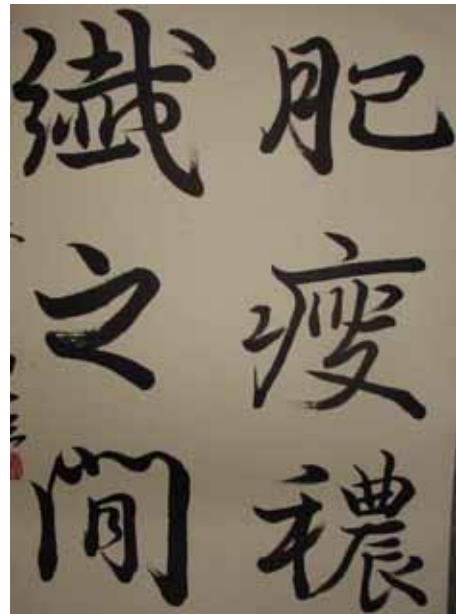 肥瘦穠
纖之間